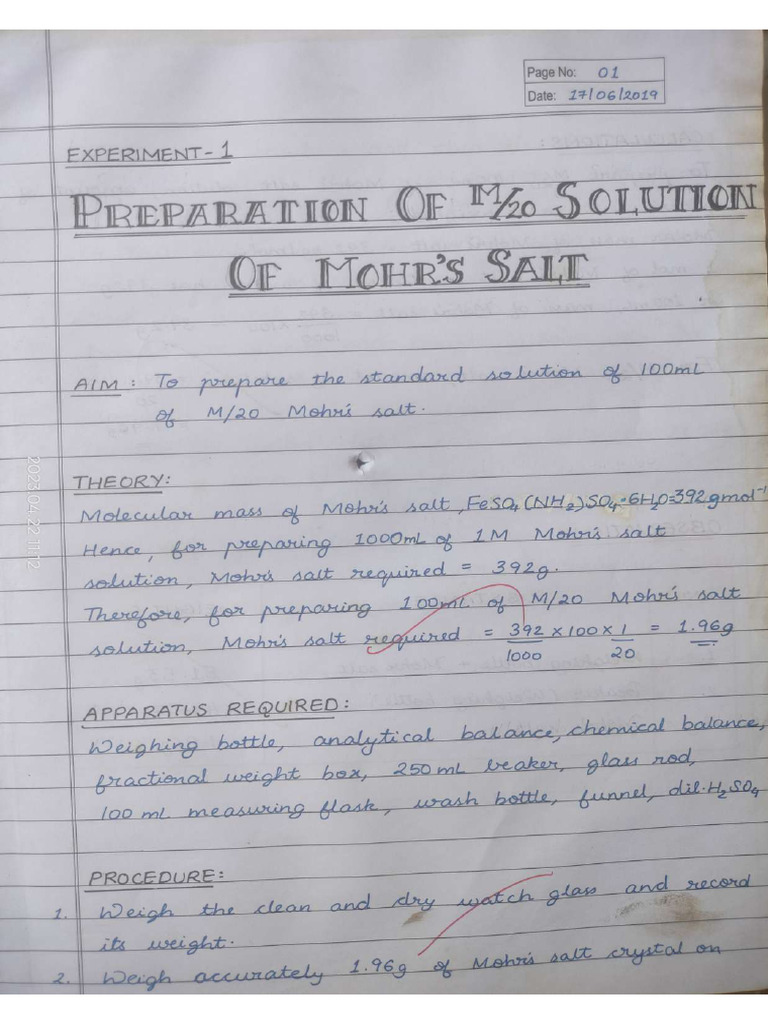 Page No: 01
Date: 17/06/2019
EXPERIMENT-1
PREPARATION OF M/20 SOLUTION
OF MOHR'S SALT
AIM : To prepare the standard solution of 100mL
of M/20 Mohr's salt.
THEORY:
Molecular mass of Mohr's salt, FeSO4(NH2)SO4·6H2O=392gmol⁻¹
Hence, for preparing 1000mL of 1M Mohr's salt
solution, Mohr's salt required = 392g.
Therefore, for preparing 100mL of M/20 Mohr's salt
solution, Mohr's salt required = 392/1000 × 100 × 1/20 = 1.96g
APPARATUS REQUIRED:
Weighing bottle, analytical balance, chemical balance,
fractional weight box, 250 mL beaker, glass rod,
100 mL measuring flask, wash bottle, funnel, dil·H2SO4
PROCEDURE:
1. Weigh the clean and dry watch glass and record
its weight.
2. Weigh accurately 1.96g of Mohr's salt crystal on
2023.04.22 11:12